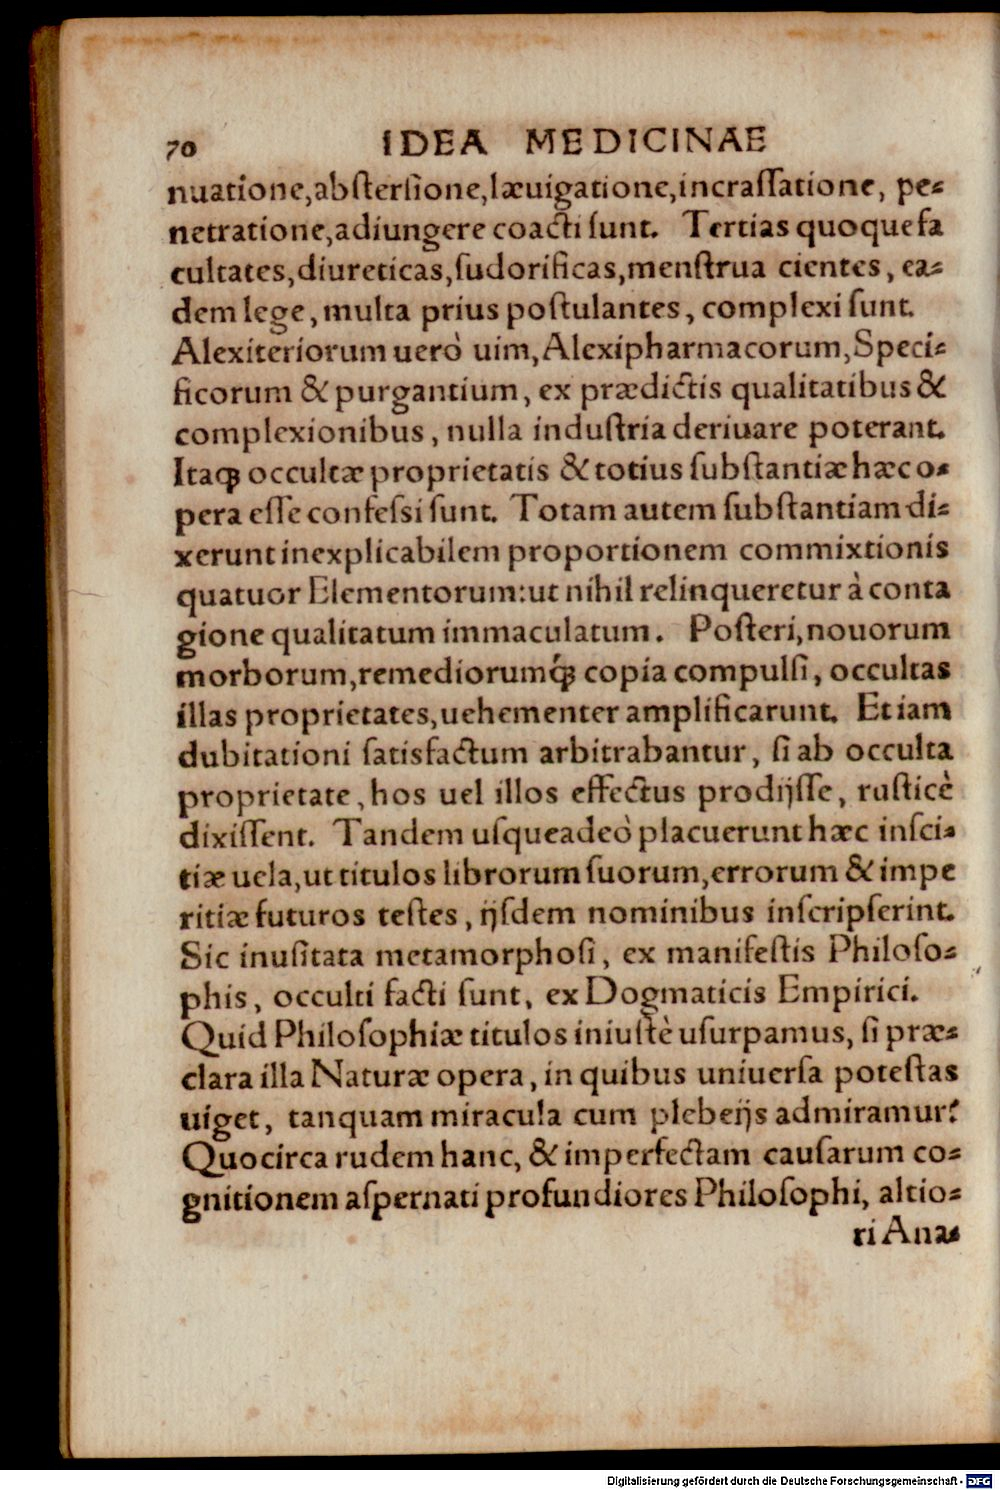 70 IDEA MEDICINAE
nuatione,abſterſione,læuigatione,incraſſatione, pe-
netratione,adiungere coacti ſunt. Tertias quoque fa
cultates,diureticas,ſudorificas,menſtrua cientes, ea-
dem lege, multa prius poſtulantes, complexi ſunt.
Alexiteriorum uerò uim,Alexipharmacorum,Speci-
ficorum & purgantium, ex prædictis qualitatibus &
complexionibus, nulla induſtria deriuare poterant.
Itaqꝫ occultæ proprietatis & totius ſubſtantiæ hæc o-
pera eſſe confeſsi ſunt. Totam autem ſubſtantiam di-
xerunt inexplicabilem proportionem commixtionis
quatuor Elementorum:ut nihil relinqueretur à conta
gione qualitatum immaculatum. Poſteri,nouorum
morborum,remediorumq́ꝫ copia compulſi, occultas
illas proprietates,uehementer amplificarunt. Etiam
dubitationi ſatisfactum arbitrabantur, ſi ab occulta
proprietate, hos uel illos effectus prodijſſe, ruſticè
dixiſſent. Tandem uſqueadeò placuerunt hæc inſci-
tiæ uela,ut titulos librorum ſuorum,errorum & impe
ritiæ futuros teſtes, ijſdem nominibus inſcripſerint.
Sic inuſitata metamorphoſi, ex manifeſtis Philoſo-
phis, occulti facti ſunt, ex Dogmaticis Empirici.
Quid Philoſophiæ titulos iniuſtè uſurpamus, ſi præ-
clara illa Naturæ opera, in quibus uniuerſa poteſtas
uiget, tanquam miracula cum plebeijs admiramur?
Quocirca rudem hanc, & imperfectam cauſarum co-
gnitionem aſpernati profundiores Philoſophi, altio-
ri Ana-
Digitalisierung gefördert durch die Deutsche Forschungsgemeinschaft - DFG